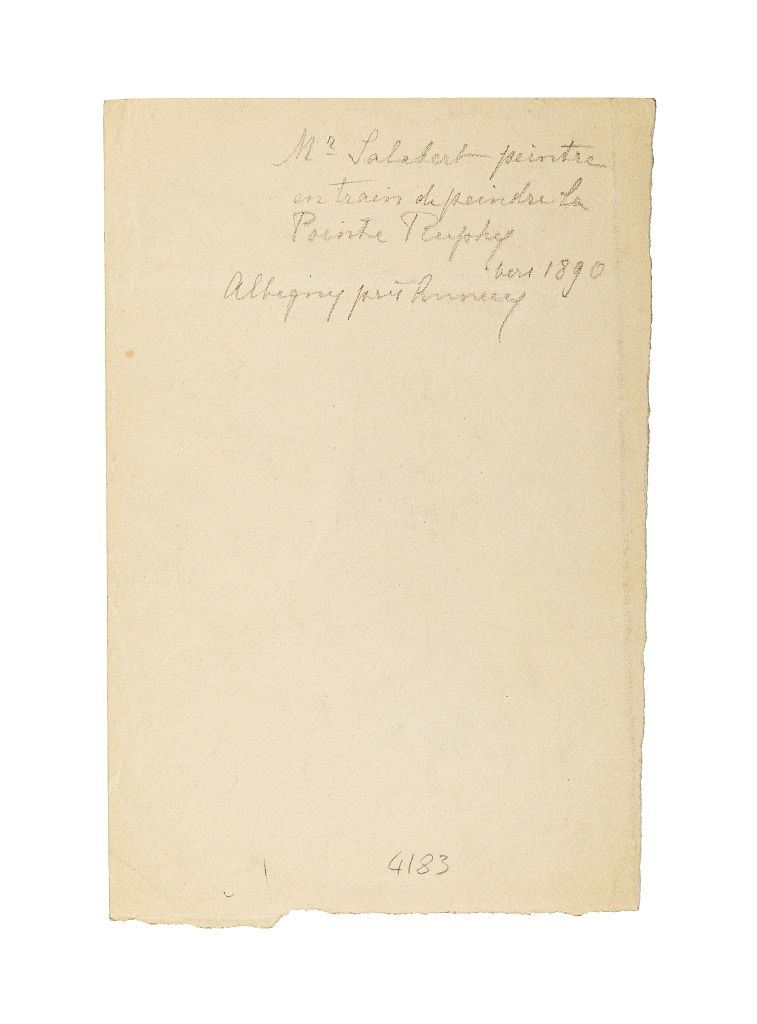 Mr Salabert peintre
en train de peindre la
Pointe Ruphy
vers 1890
Albigny près Annecy
4183